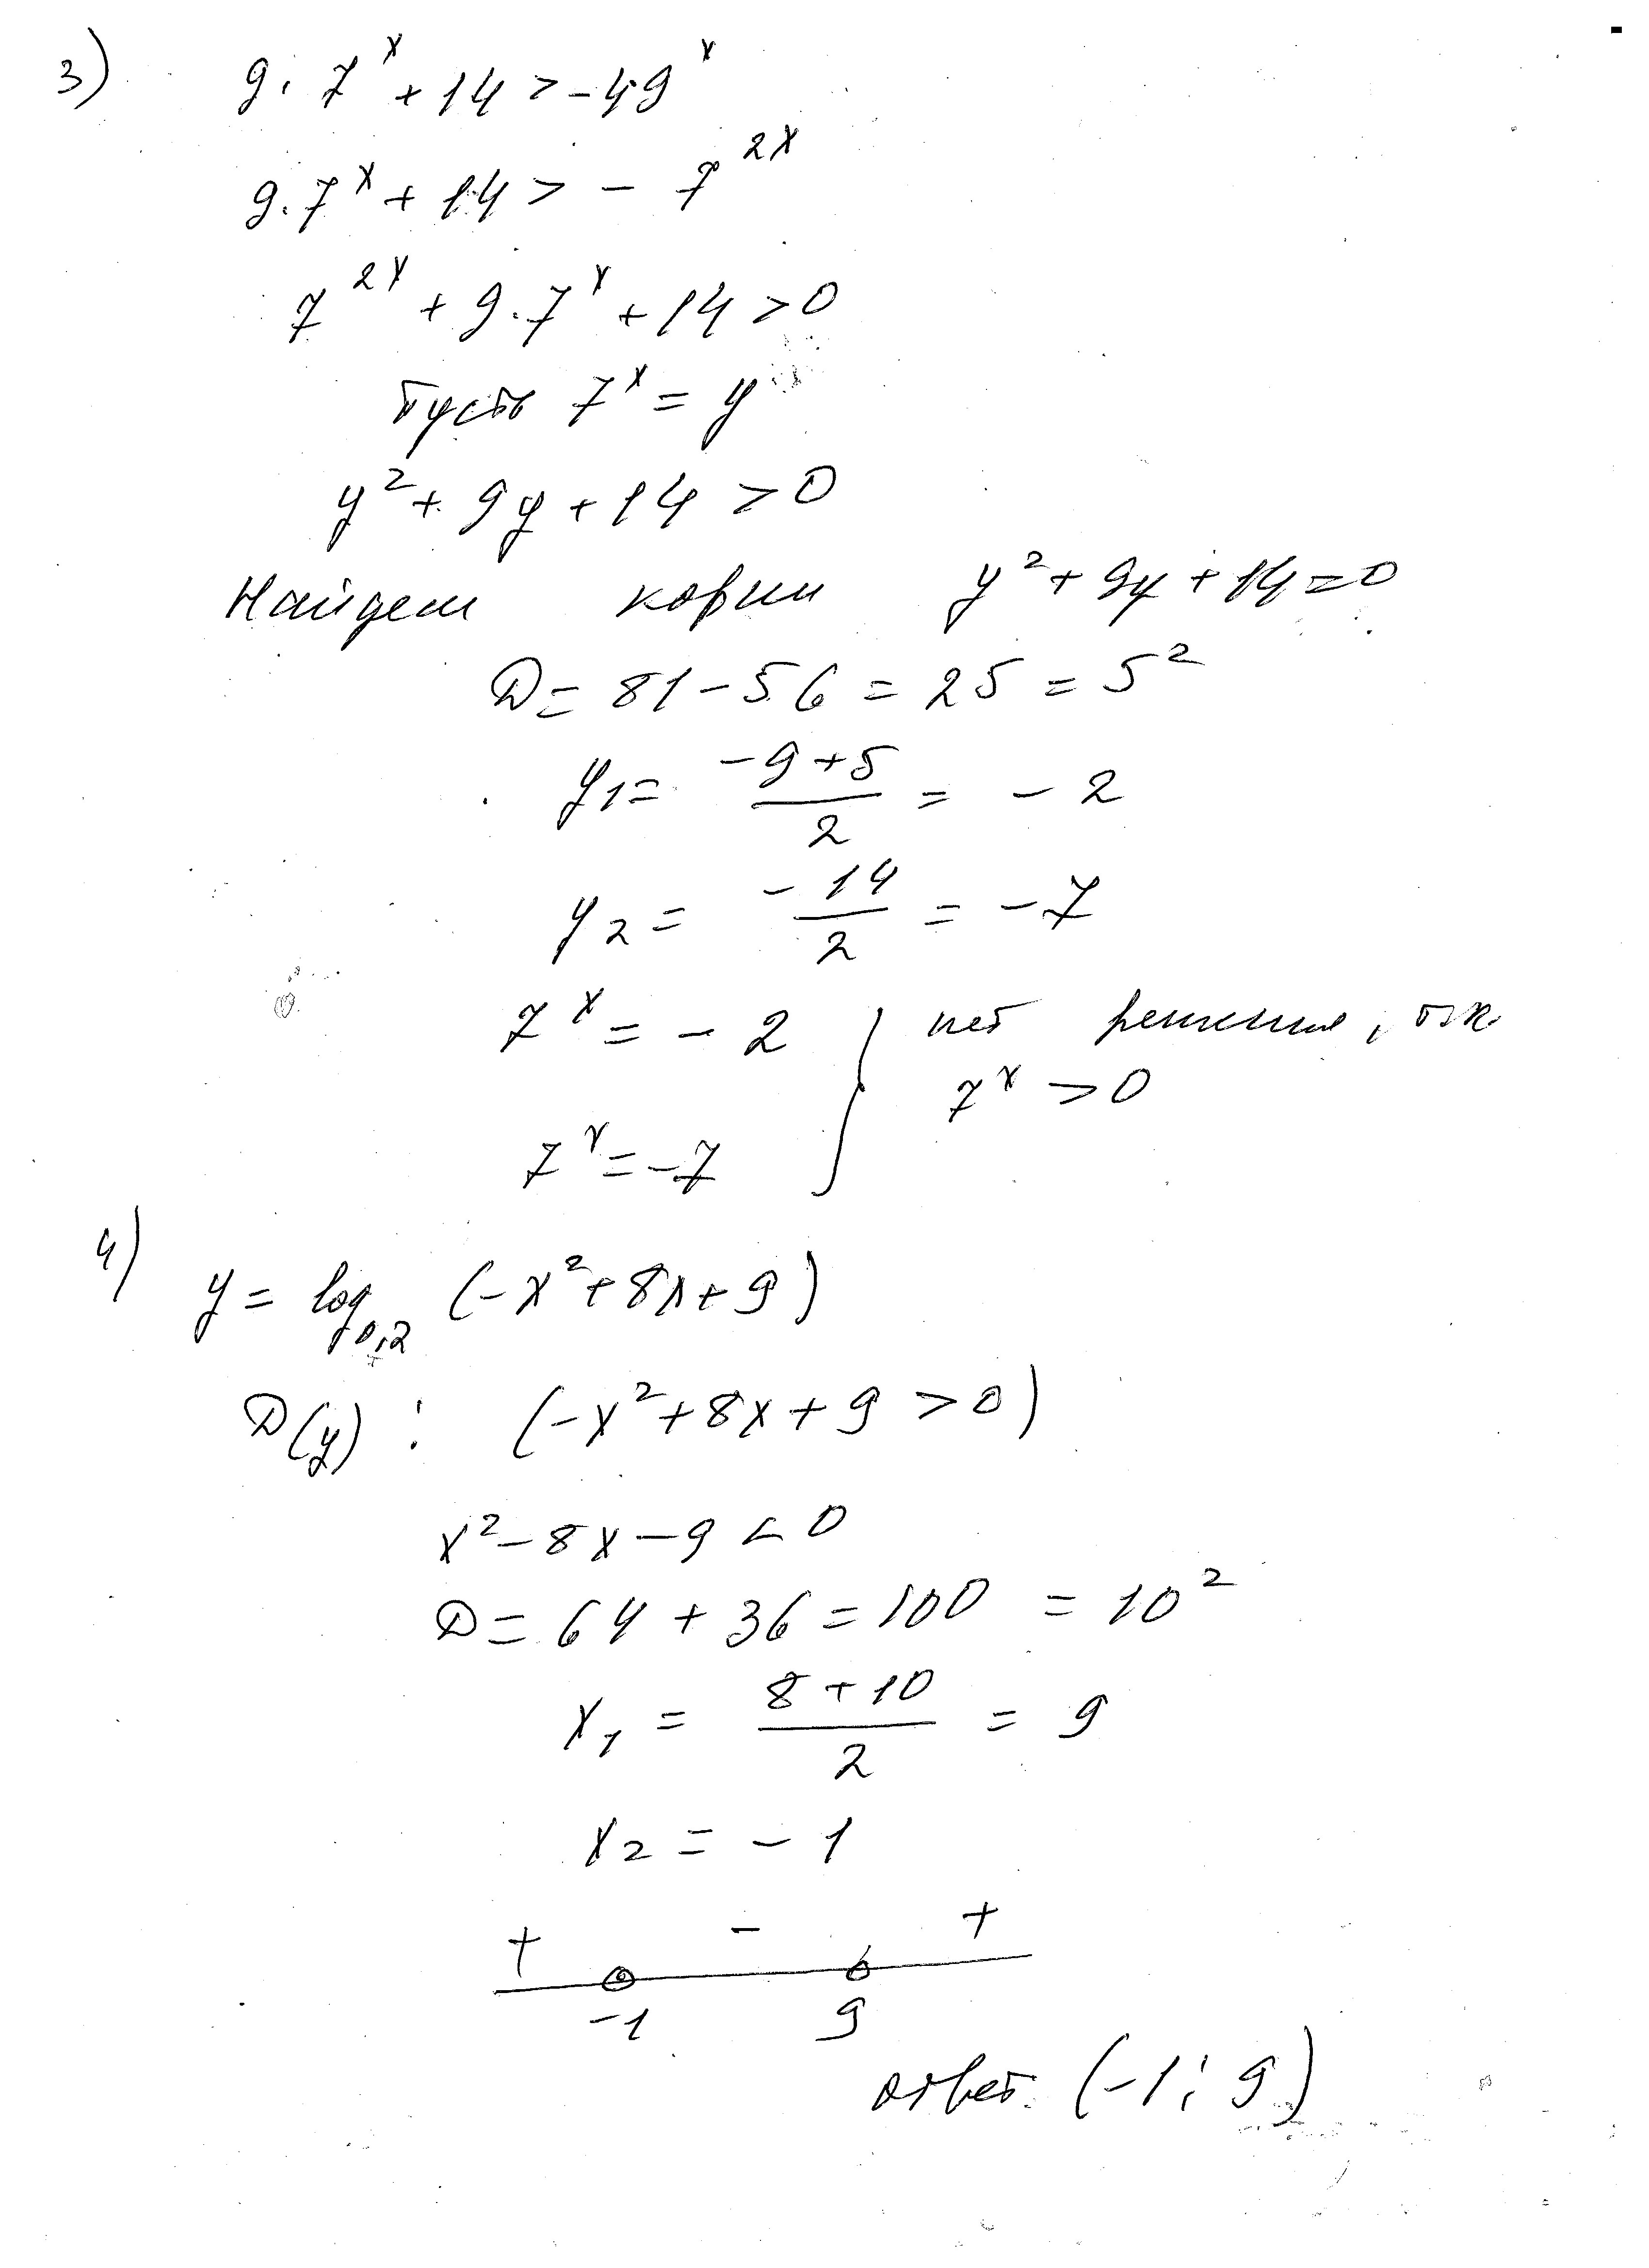 3) 9·7ˣ + 14 > -49ˣ
9·7ˣ + 14 > - 7²ˣ
7²ˣ + 9·7ˣ + 14 > 0
Пусть 7ˣ = y
y² + 9y + 14 > 0
Найдем корни y² + 9y + 14 = 0
D = 81 - 56 = 25 = 5²
y₁ = (-9+5)/2 = -2
y₂ = -14/2 = -7
7ˣ = -2 } нет решения, т.к.
7ˣ > 0
7ˣ = -7
4) y = log₀,₂ (-x² + 8x + 9)
D(y) : (-x² + 8x + 9 > 0)
x² - 8x - 9 < 0
D = 64 + 36 = 100 = 10²
x₁ = (8+10)/2 = 9
x₂ = -1
+ - +
-1 9
ответ. (-1; 9)